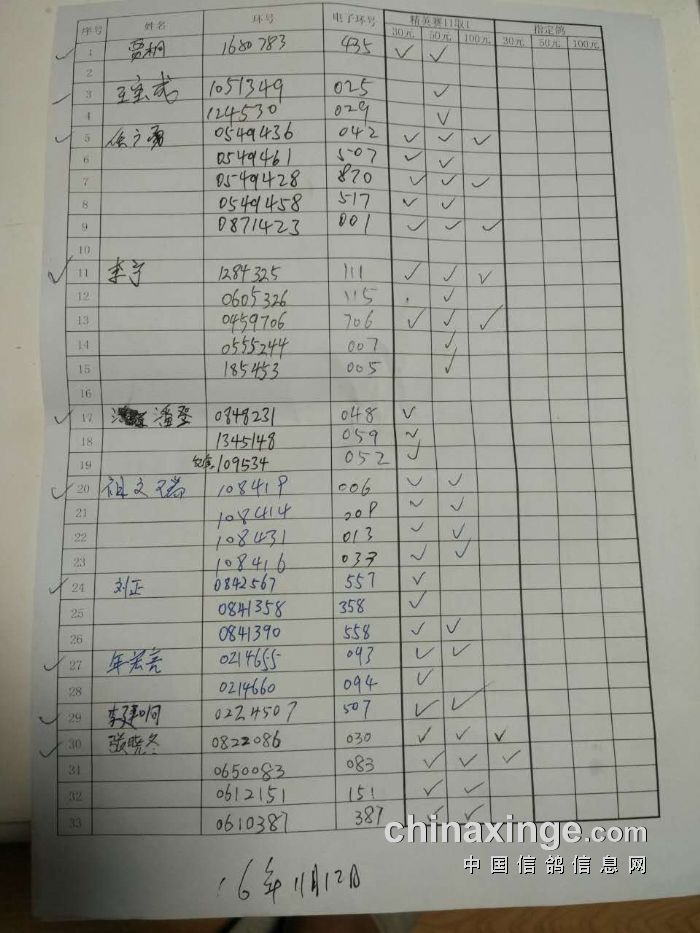 序号 姓名 环号 电子环号 精英赛11取1 指定鸽
30元 50元 100元 30元 50元 100元
1 贾桐 1680783 435 ✓ ✓
2
3 王宝武 1051349 025 ✓
4 124530 029 ✓
5 0549436 042 ✓ ✓ ✓
6 0549461 507 ✓ ✓
7 0549428 870 ✓ ✓ ✓
8 0549458 517 ✓ ✓
9 0871423 001 ✓ ✓ ✓
10
11 李宁 1284325 111 ✓ ✓ ✓
12 0605326 115 ✓
13 0459706 706 ✓ ✓ ✓
14 0555244 007 ✓
15 185453 005 ✓
16
17 潘登 0848231 048 ✓
18 1345148 059 ✓
19 109534 052 ✓
20 祖文瑞 108419 006 ✓ ✓
21 108414 008 ✓ ✓
22 108431 013 ✓ ✓
23 108416 033 ✓ ✓
24 刘正 0842567 557 ✓
25 0841358 358 ✓
26 0841390 558 ✓ ✓
27 年宏亮 0214655 093 ✓ ✓
28 0214660 094 ✓
29 0224507 507 ✓ ✓
30 张晓冬 0822086 030 ✓ ✓ ✓
31 0650083 083 ✓ ✓ ✓
32 0612151 151 ✓ ✓
33 0610387 387 ✓ ✓
chinaxinge.com
中国信鸽信息网
16年11月12日